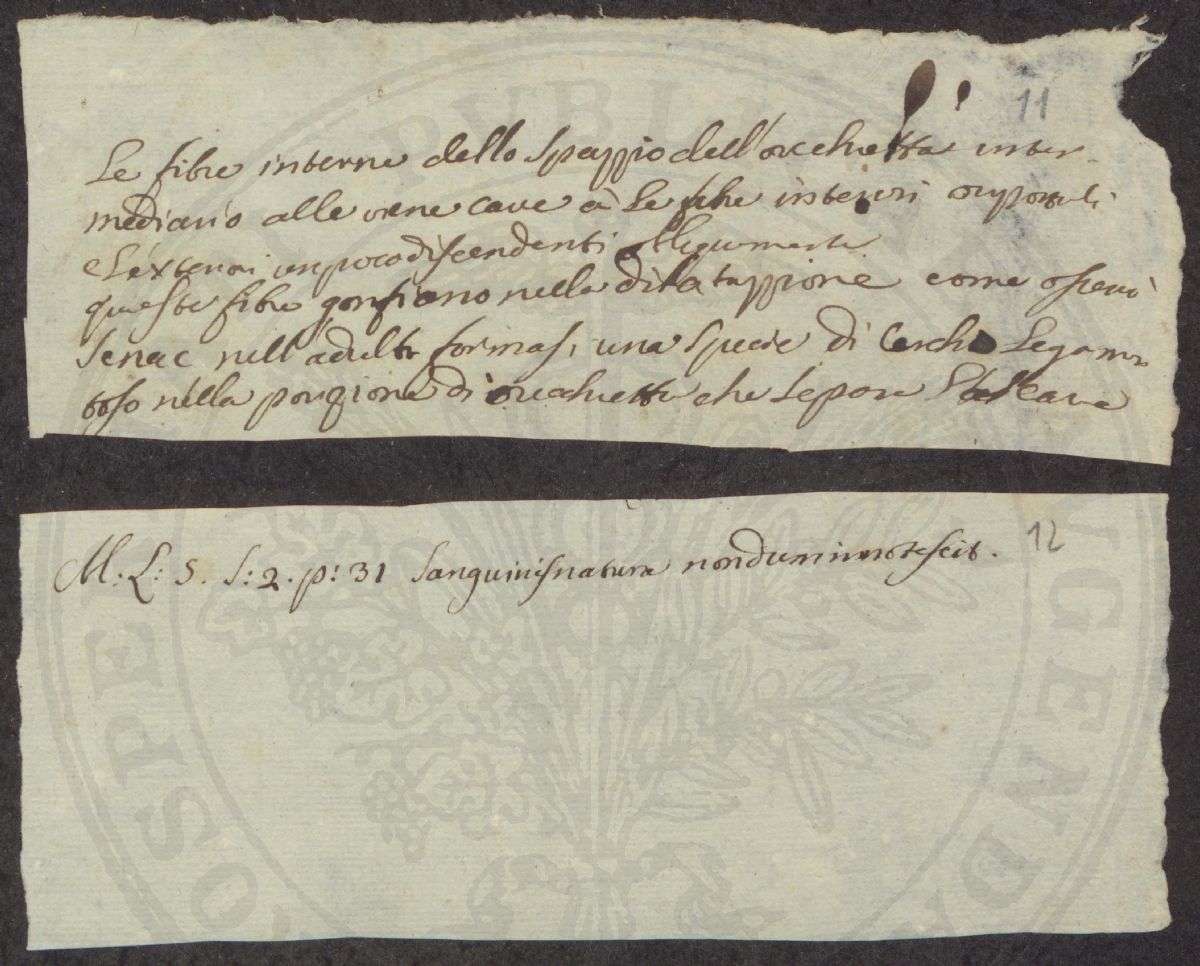 11
Le fibre interne dello Spazzio dell'orechietta inter-
mediario alle vene cave à le fibre interiori
e l'exteriori un poco discendenti
queste fibre gonfiano nella dilatazzione come osservò
Senac nell'adulto formasi una specie di Cerchio Legamen
toso nella porzione di orechietta che separa
12
M: L: S. S: 2. p: 31 Sanguinis natura nondum innotescit.
PVBLI